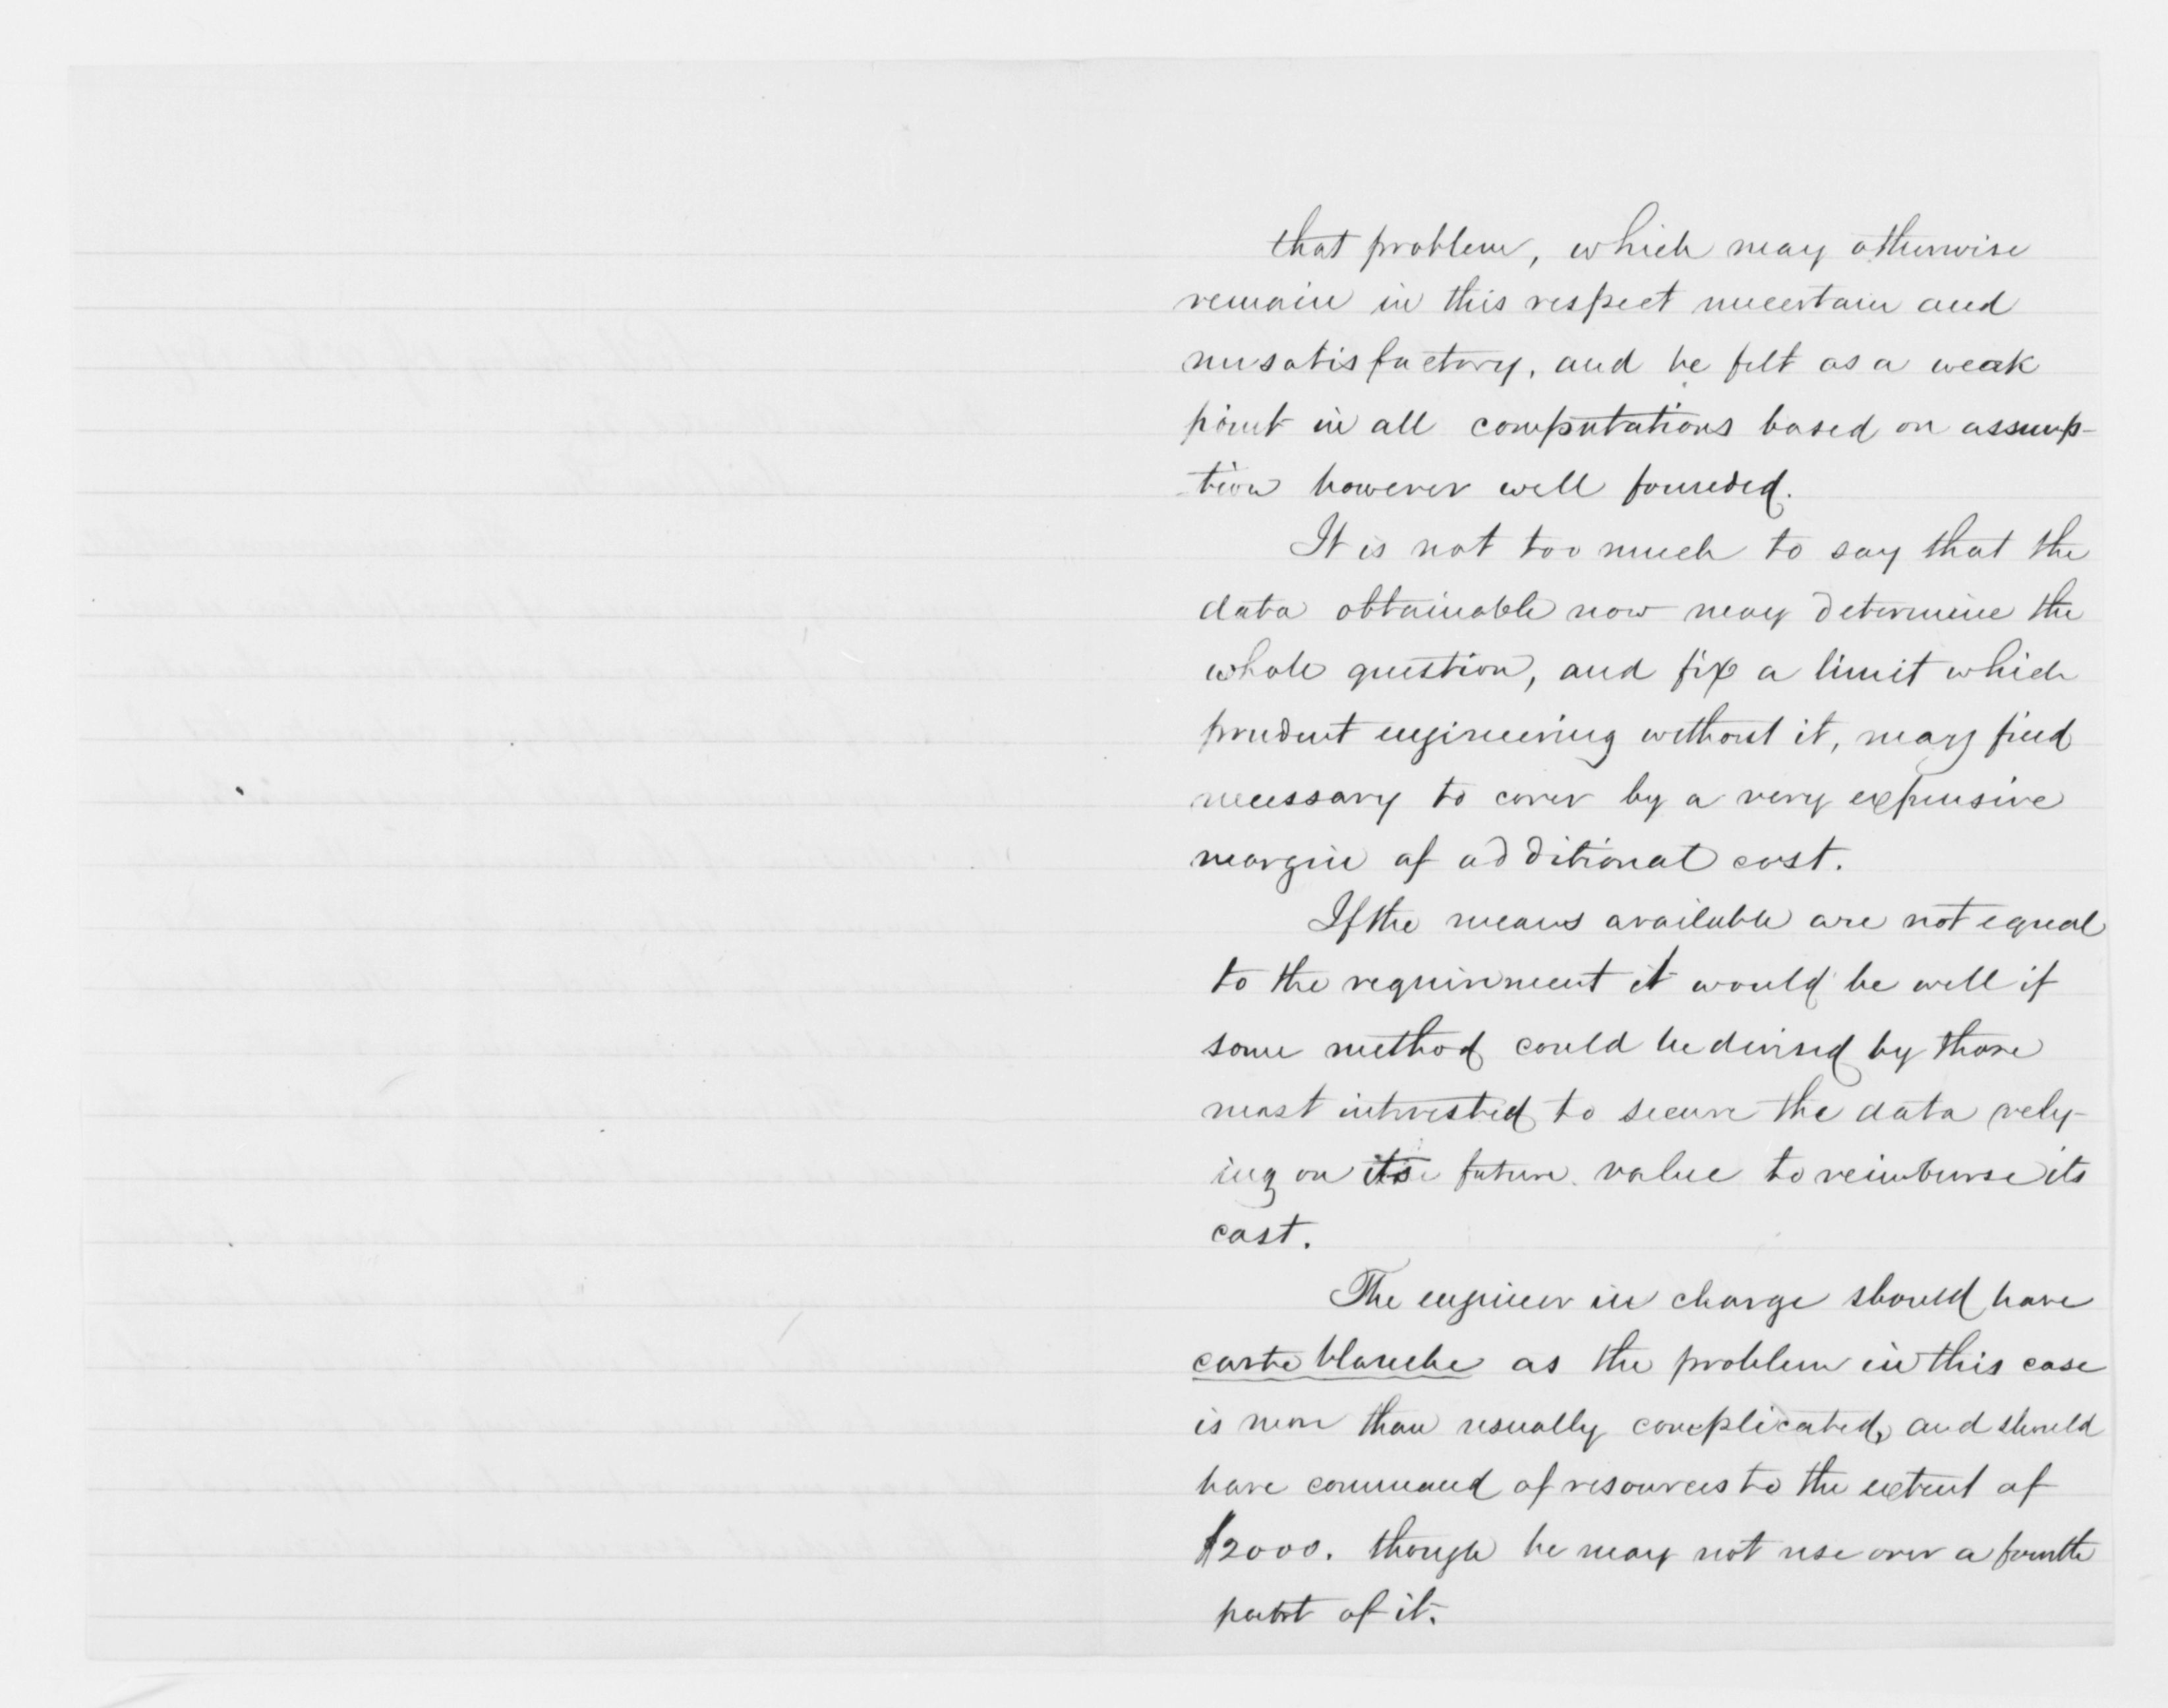 that problem, which may otherwise
remain in this respect uncertain and
unsatisfactory, and be felt as a weak
point in all computations based on assump-
tion however well founded.
It is not too much to say that the
data obtainable now may determine the
whole question, and fix a limit which
prudent engineering without it, may find
necessary to cover by a very expensive
margin of additional cost.
If the means available are not equal
to the requirement it would be well if
some method could be devised by those
most interested to secure the data rely-
ing on its future value to reimburse its
cost.
The engineer in charge should have
carte blanche as the problem in this case
is more than usually complicated, and should
have command of resources to the extent of
$2000. though he may not use over a fourth
part of it.